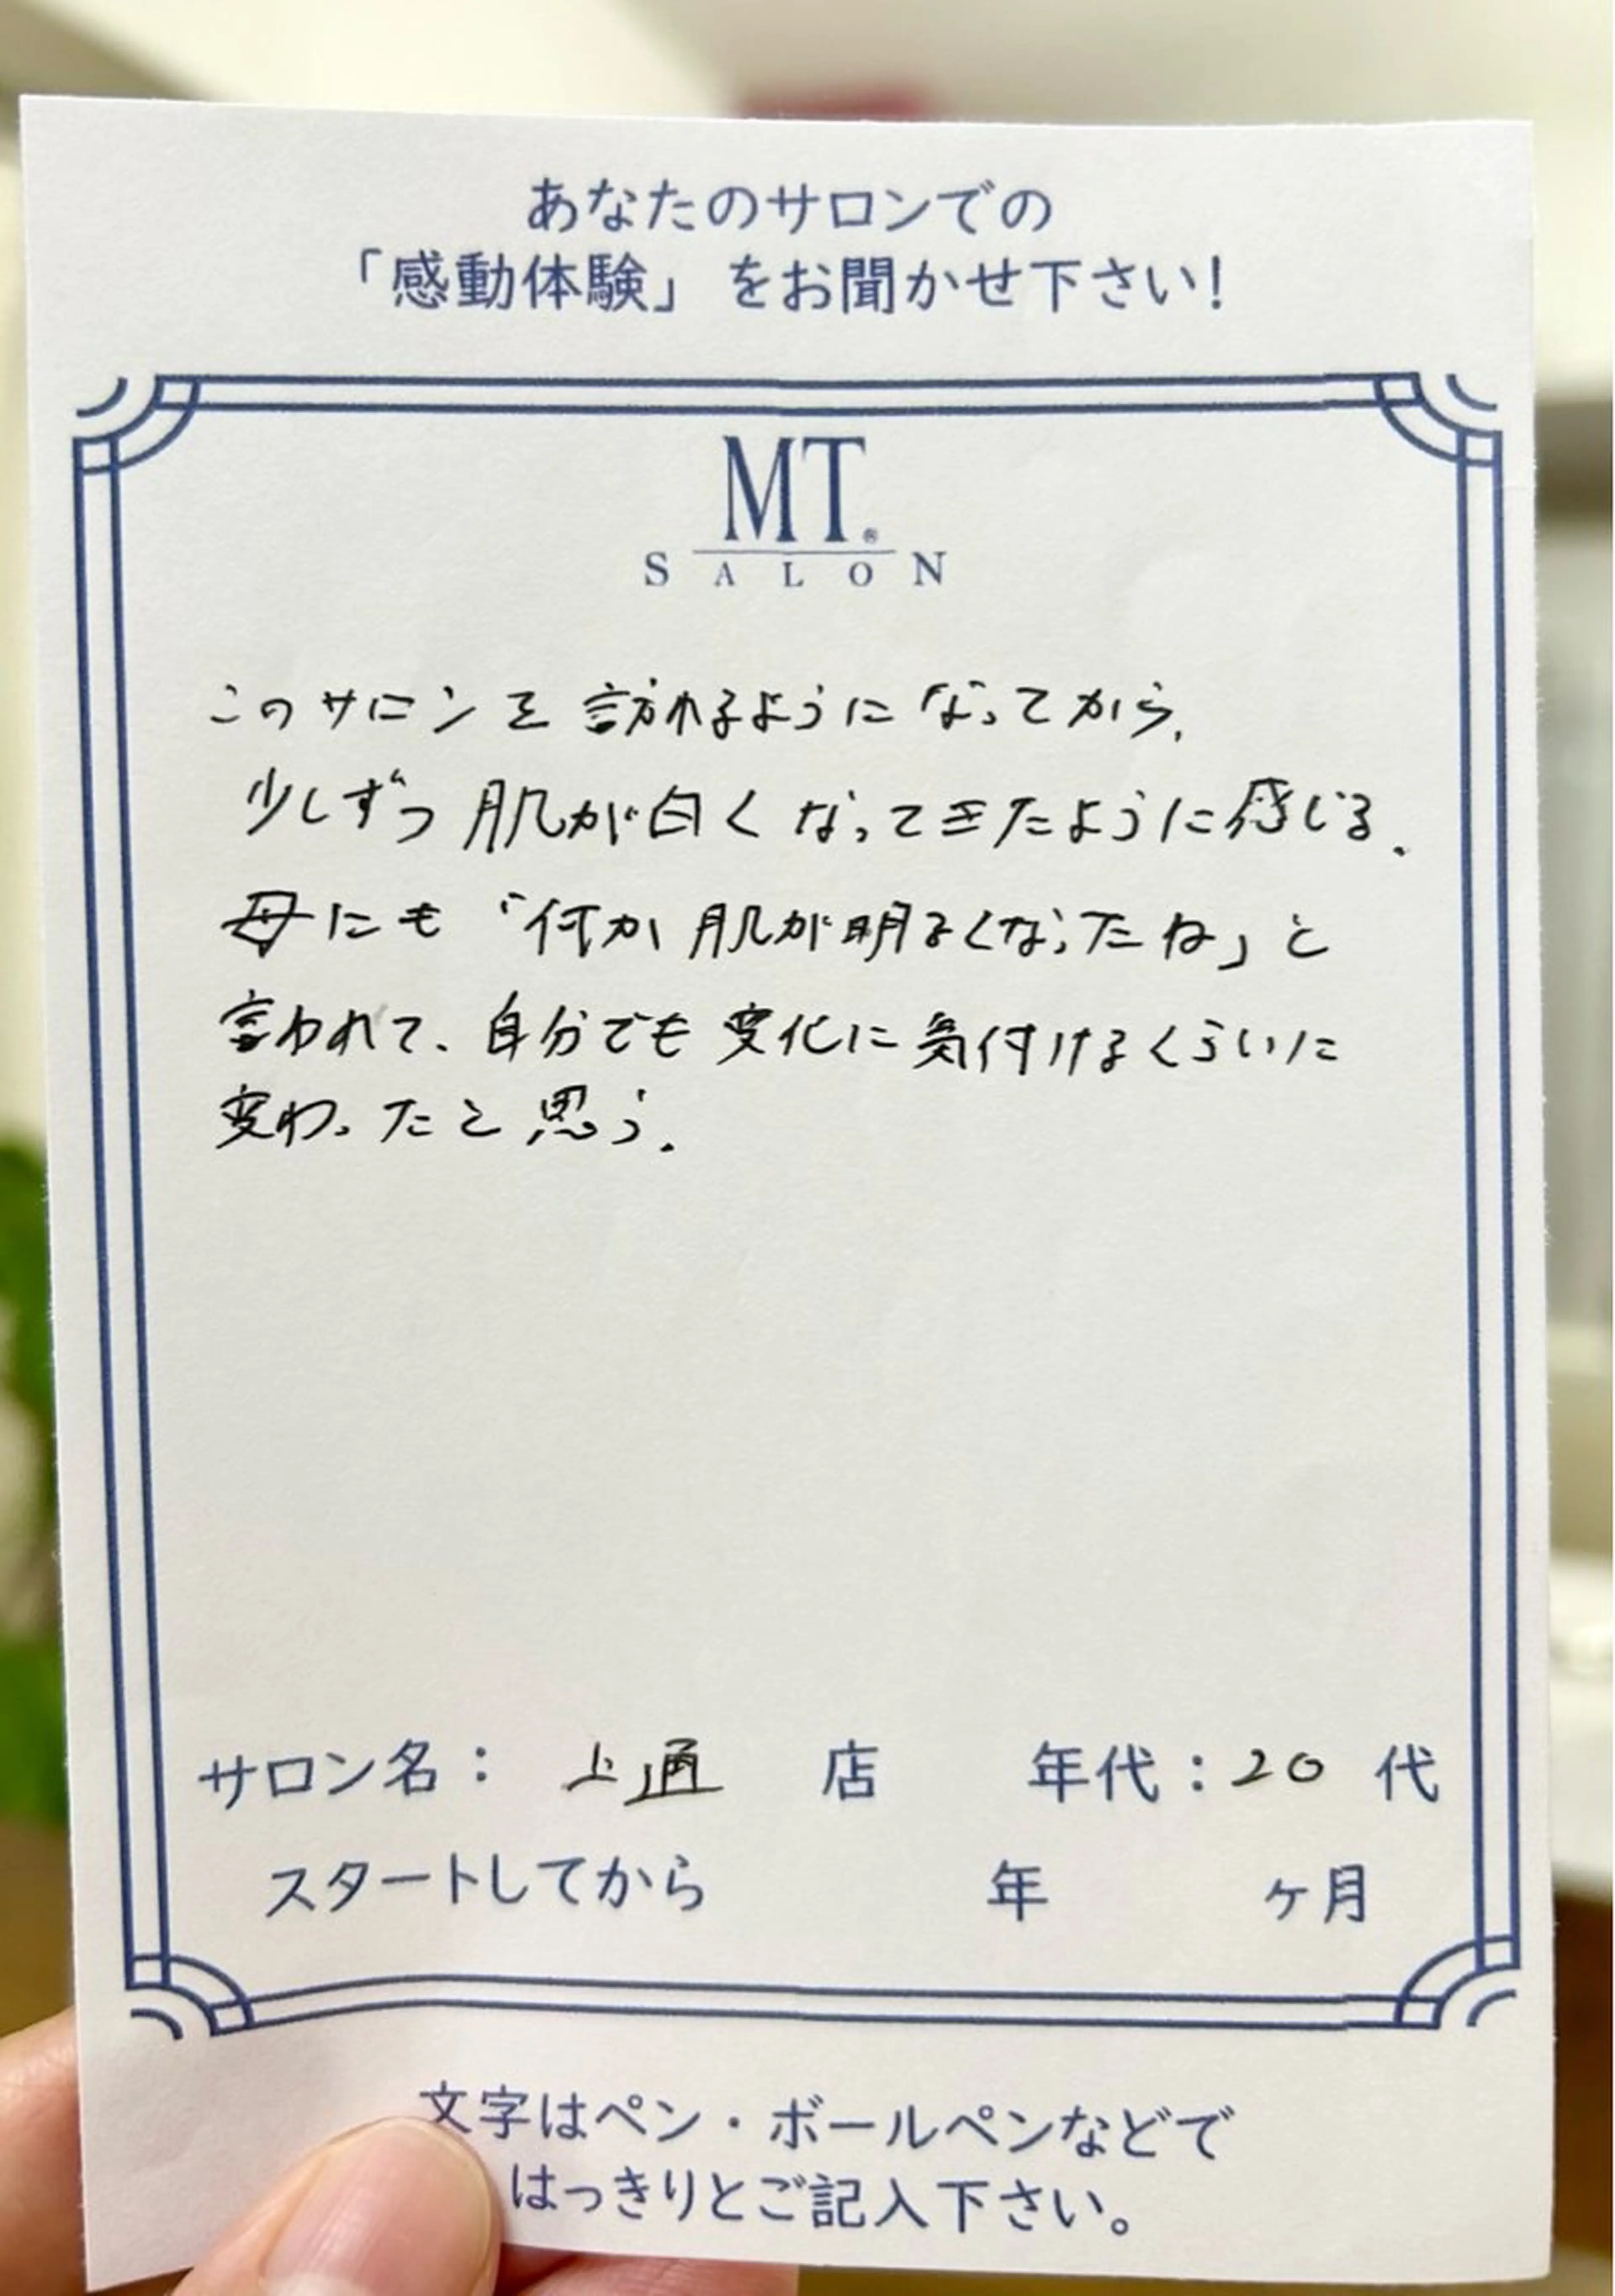 あなたのサロンでの
「感動体験」をお聞かせ下さい!
MT®
SALON
このサロンを訪れるようになってから、
少しずつ肌が白くなってきたように感じる。
母にも「何か肌が明るくなったね」と
言われて、自分でも変化に気付けるくらいに
変わったと思う。
サロン名: 上通 店 年代:20 代
スタートしてから 年 ヶ月
文字はペン・ボールペンなどで
はっきりとご記入下さい。